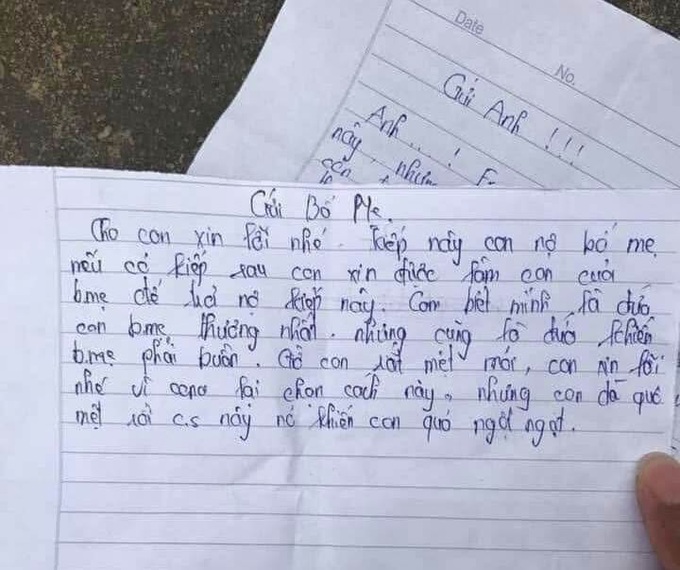 Date
No.
Gửi Anh !!!
Anh... !
này, nhưn
Gửi Bố Mẹ.
Cho con xin lỗi nhé. Kiếp này con nợ bố mẹ
nếu có kiếp sau con xin được làm con của
bmẹ để trả nợ kiếp này. Con biết mình là đứa
con bmẹ thương nhất. nhưng cũng là đứa khiến
bmẹ phải buồn. Giờ con rất mệt mỏi, con xin lỗi
nhé vì con lại chọn cách này, nhưng con đã quá
mệt rồi c.s này nó khiến con quá ngột ngạt.